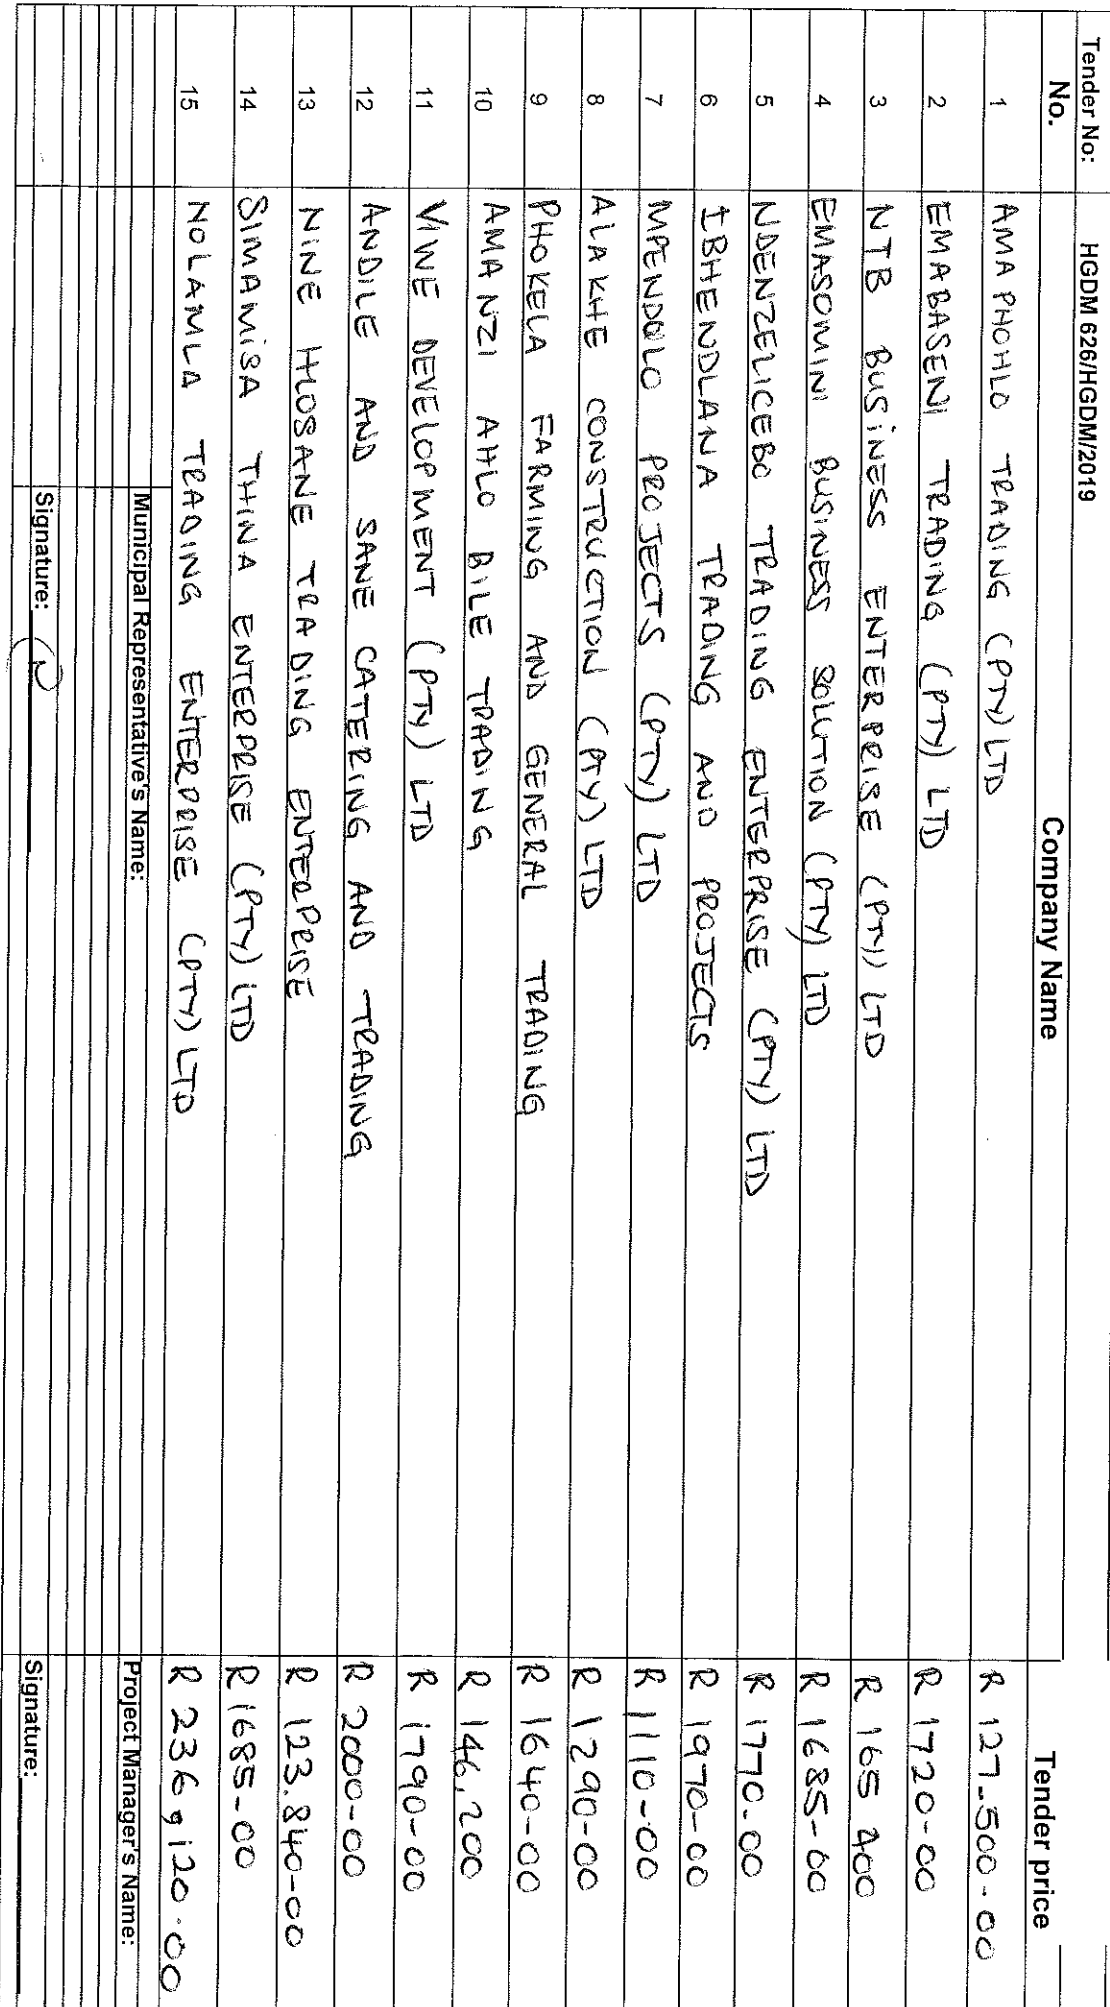 Tender No: HGDM 626/HGDM/2019
No. Company Name Tender price
1 AMAPHOHLO TRADING (PTY) LTD R 127-500-00
2 EMABASENI TRADING (PTY) LTD R 1720-00
3 NTB BUSINESS ENTERPRISE (PTY) LTD R 165 400
4 EMASOMINI BUSINESS SOLUTION (PTY) LTD R 1685-00
5 NDENZELICEBO TRADING ENTERPRISE (PTY) LTD R 1770-00
6 IBHENDLANA TRADING AND PROJECTS R 1970-00
7 MPENDULO PROJECTS (PTY) LTD R 1110-00
8 ALAKHE CONSTRUCTION (PTY) LTD R 1290-00
9 PHOKELA FARMING AND GENERAL TRADING R 1640-00
10 AMANZI AHLO BILE TRADING R 146,200
11 VIWE DEVELOPMENT (PTY) LTD R 1790-00
12 ANDILE AND SANE CATERING AND TRADING R 2000-00
13 NINE HLOSANE TRADING ENTERPRISE R 123.840-00
14 SIMAMISA THINA ENTERPRISE (PTY) LTD R 1685-00
15 NOLAMLA TRADING ENTERPRISE (PTY) LTD R 236,120.00
Municipal Representative's Name: Project Manager's Name:
Signature: Signature: